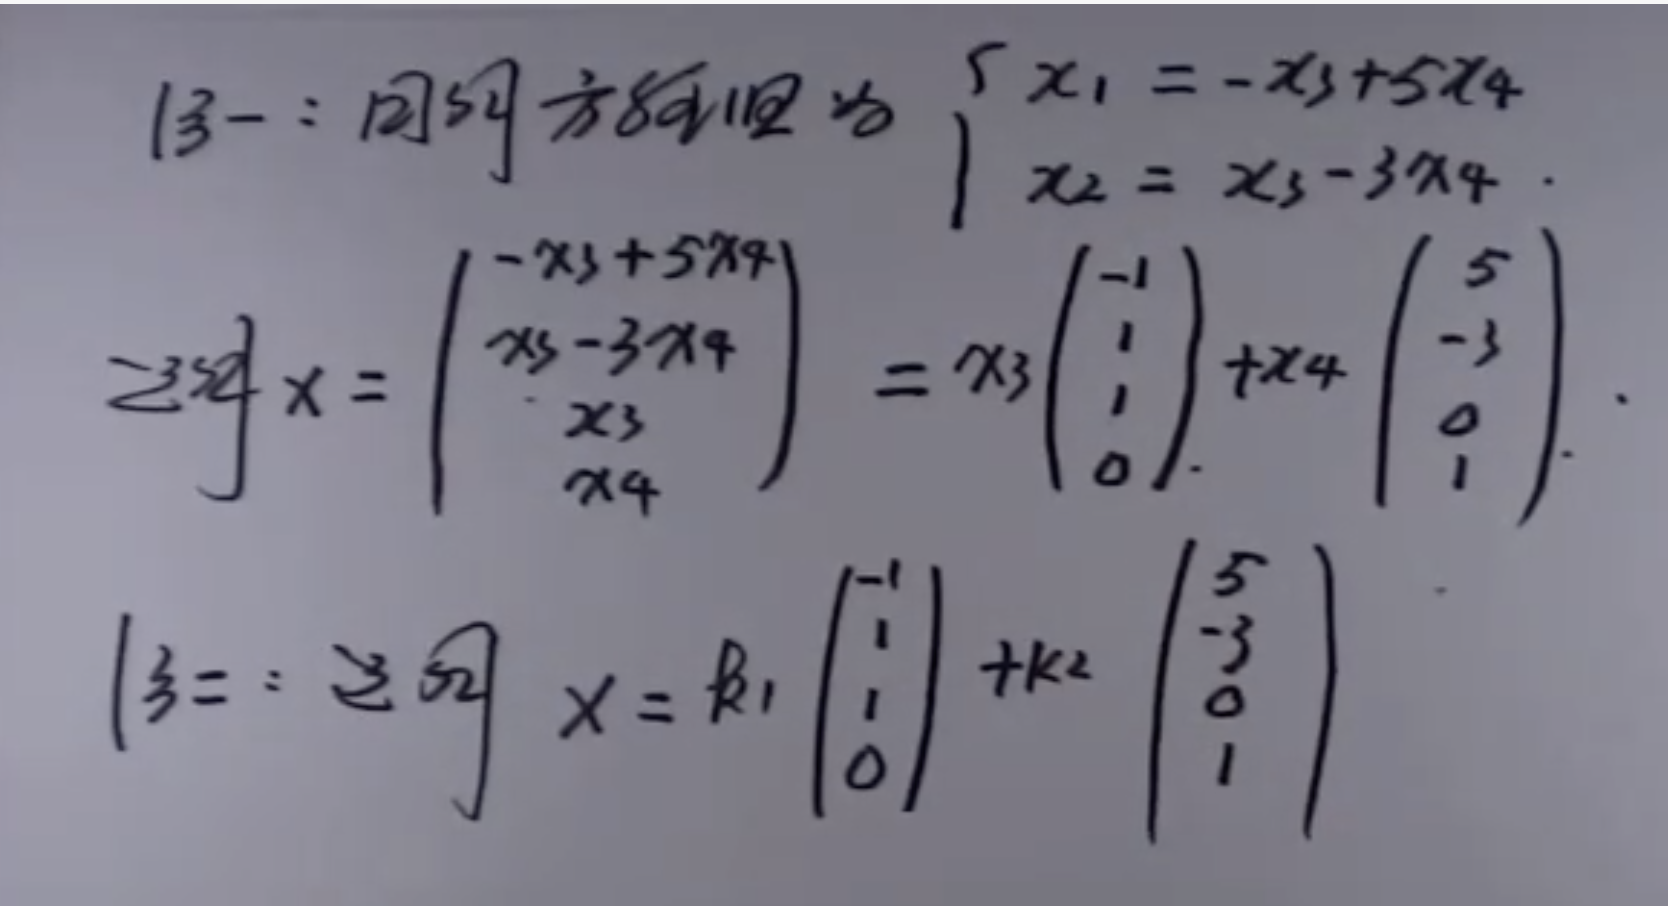 阝方一：同解方程组为 { x1 = -x3+5x4
x2 = x3-3x4 .
通解 x = ( -x3+5x4 x3-3x4 x3 x4 ) = x3 ( -1 1 1 0 ) + x4 ( 5 -3 0 1 ) .
二：通解 x = k1 ( -1 1 1 0 ) + k2 ( 5 -3 0 1 )